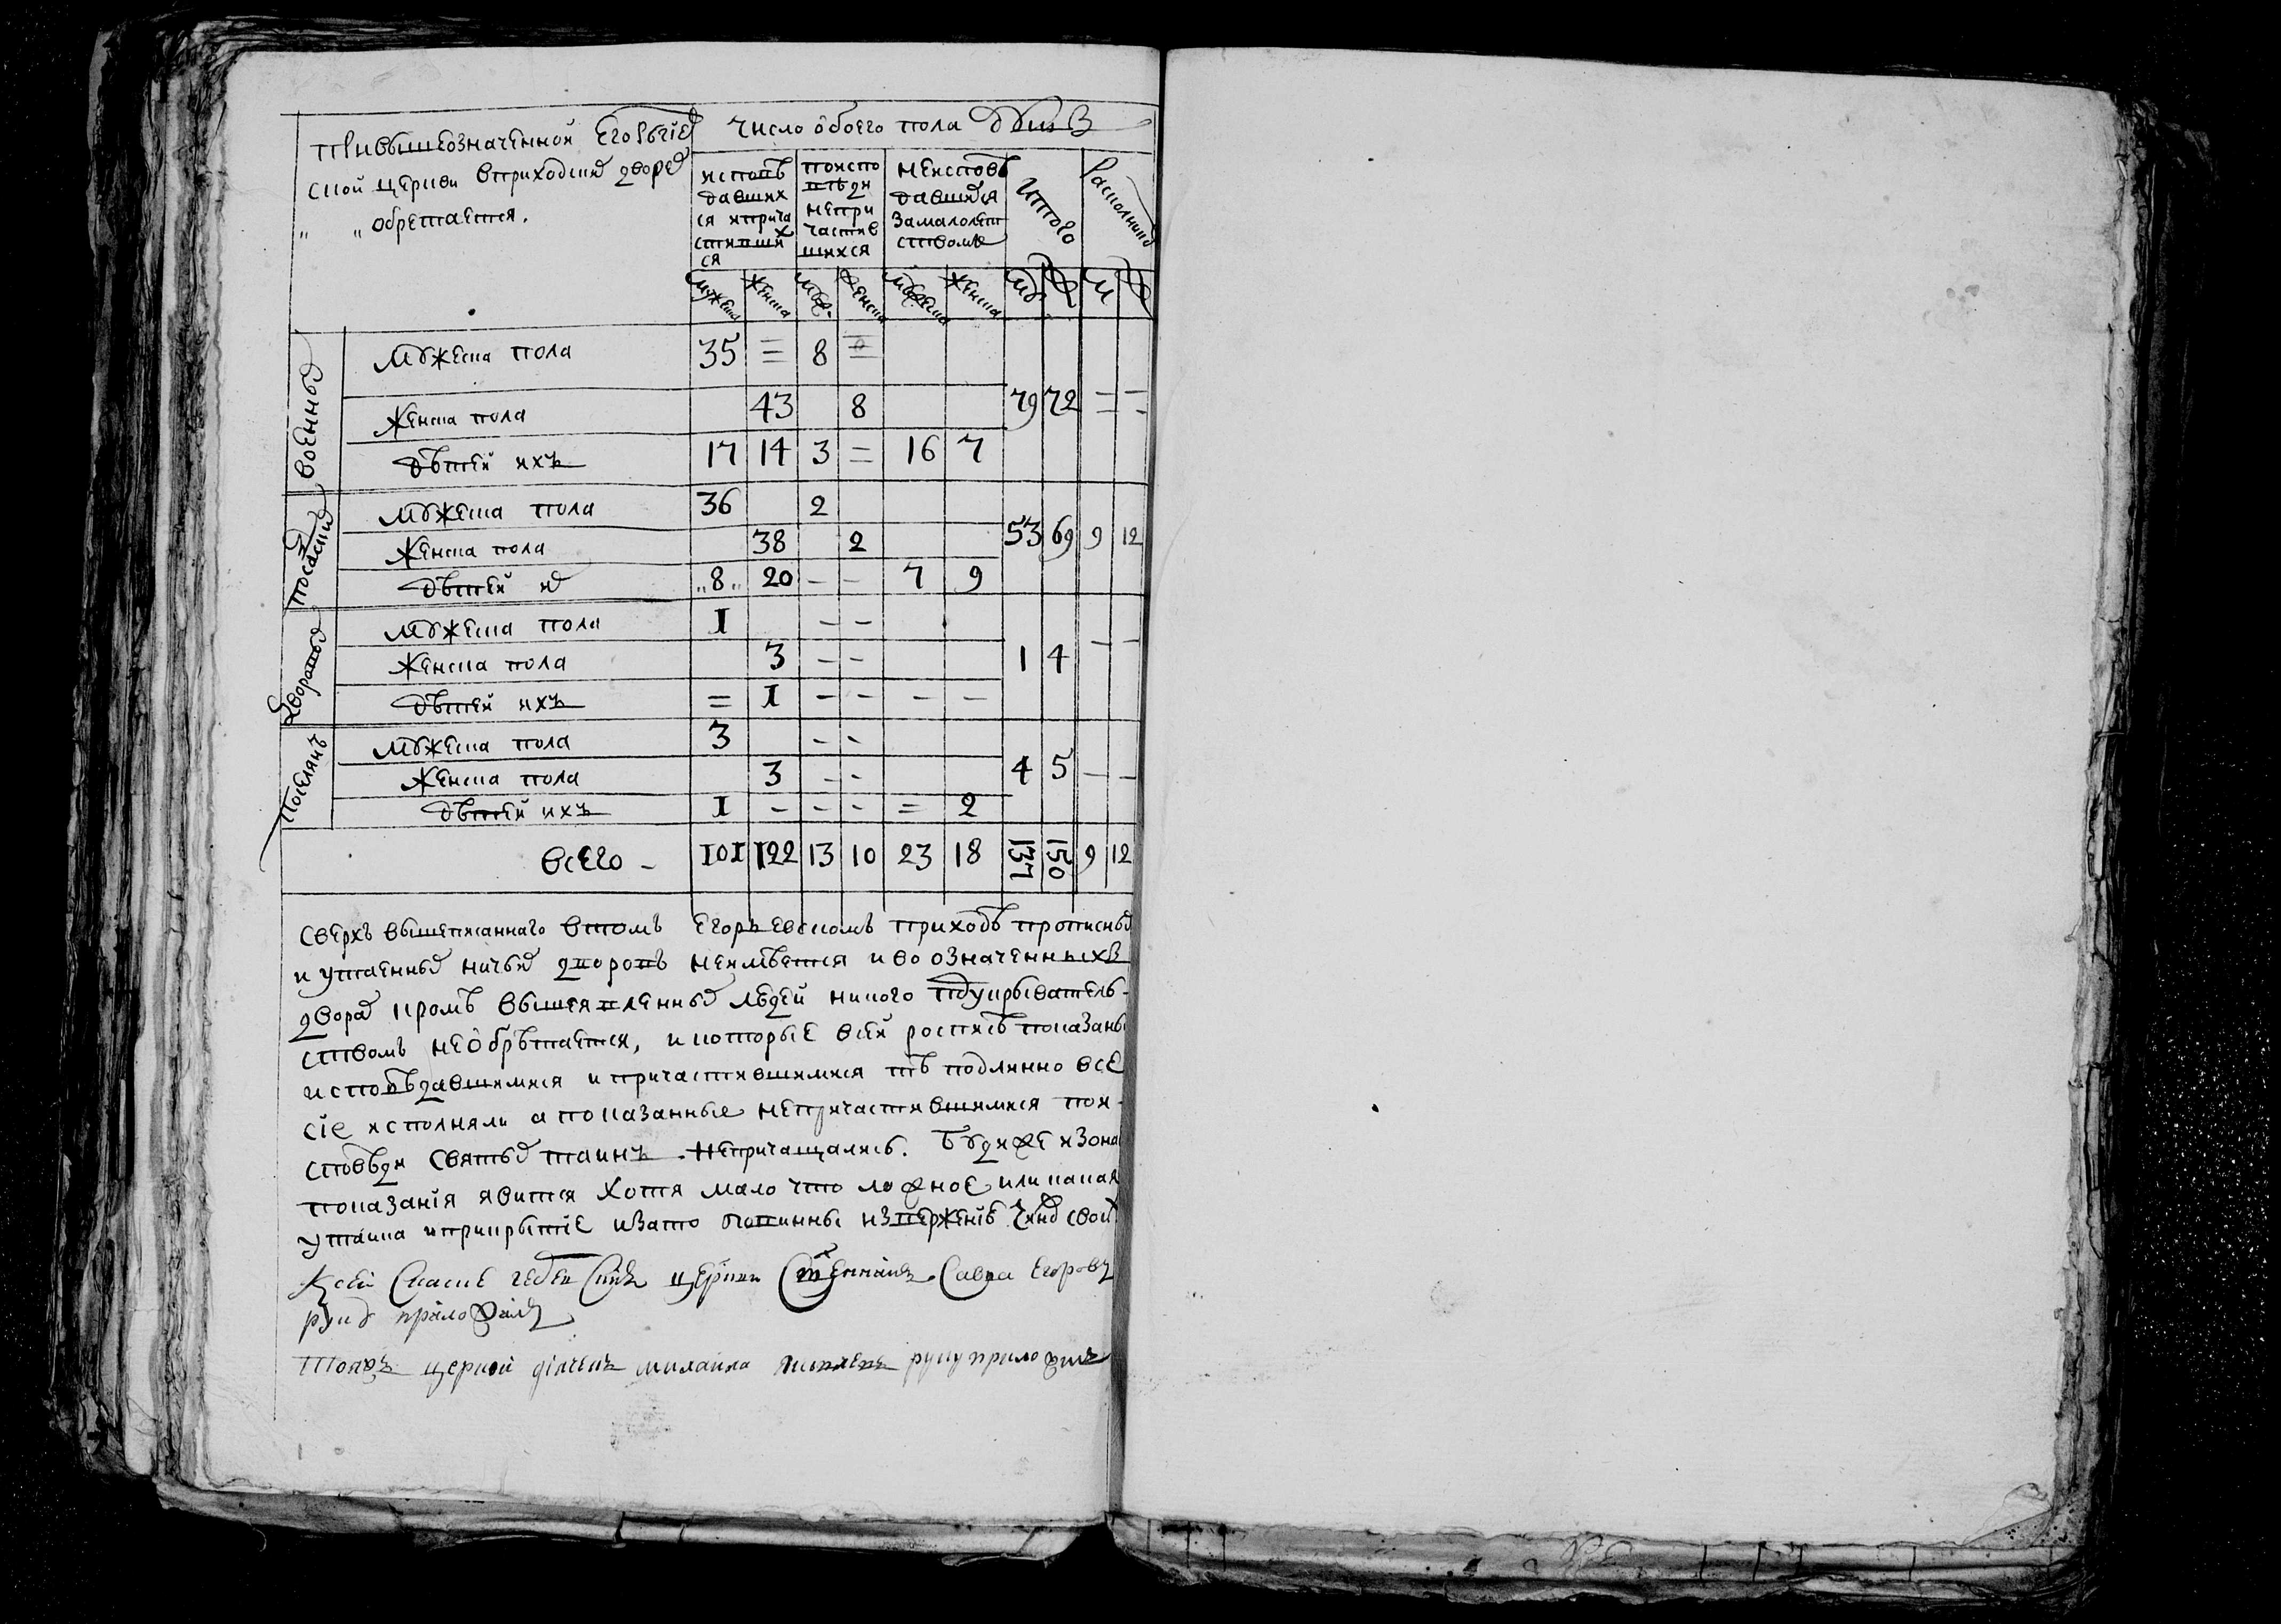 при вышеозначенной Егорьев
ской церкви вприходских дворех
" " обретается.
число обоего пола душъ
исповѣ
давших
ся иприча
стивши х
ся
поиспо
вѣди
непри
частив
шихся
неисповѣ
давшихся
замалолет
ством
итого
расколников
мужеска женска муже. женска мужеска женска муж ж м ж
военных
мужеска пола 35 = 8 =
женска пола 43 8 79 72 = =
дѣтей ихъ 17 14 3 = 16 7
посацких
мужеска пола 36 2
женска пола 38 2 53 69 9 12
дѣтей их „8„ 20 – – 7 9
дворовых
мужеска пола I – – – –
женска пола 3 – – 1 4
дѣтей ихъ = I – – – –
поселянъ
мужеска пола 3 – –
женска пола 3 – – 4 5 – –
дѣтей ихъ I – – – = 2
всего – I0I I22 13 10 23 18 137 150 9 12
сверхъ вышеписаннаго втомъ Егорьевскомъ приходѣ прописных
и утаенных ничьих дворовъ неимѣется и во означенныхъ
дворах кромѣ вышеявленных людей никого подукрыватель-
ствомъ необрѣтается, и которые всей росписѣ показаны
исповѣдавшимися и причастившимися тѣ подлинно все
сіе исполняли а показанные непричастившимися пои-
сповѣди святых таинъ непричащались. Будиже изона
показанія явится хотя мало что ложное или какая
утаика иприкрытіе изато повинны изверженїю чинов своих
Ксей церкви Савва Егоровъ
руку приложилъ
Тояжъ церкви дїячекъ михаила руку приложилъ